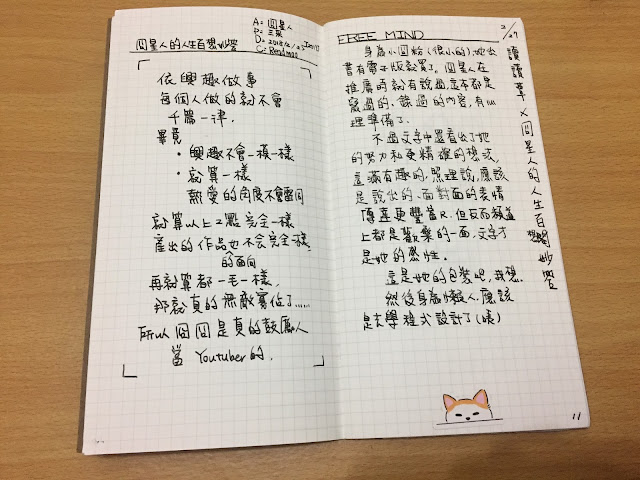 A= 囧星人
P= 三采
D= 2018/2/2
C= Readmoo
囧星人的人生百想妙答
依興趣做事
每個人做的就不會
千篇一律.
畢竟
・興趣不會一模一樣
・就算一樣
熱愛的角度不會雷同
就算以上2點完全一樣
產出的作品也不會完全一樣
的面向
再就算都一毛一樣,
那就真的無敵奪佔了......
所以囧囧是真的鼓勵人
當 Youtuber 的.
FREE MIND
2/27
身為小囧粉(很小的),她出
書有電子版就買了。囧星人在
推廣時就有說過,這本都是
寫過的、錄過的內容,有心
理準備了.
不過文字中還看出了她
的努力和更精確的想法,
這滿有趣的,照理說,應該
是說出的、面對面的表情
傳達更豐富R.但反而頻道
上都是歡樂的一面,文字才
是她的感性.
這是她的包裝吧,我想.
然後身為懶人.應該
是去學程式設計了(咦)
讀讀草 × 囧星人的人生百想妙答
11